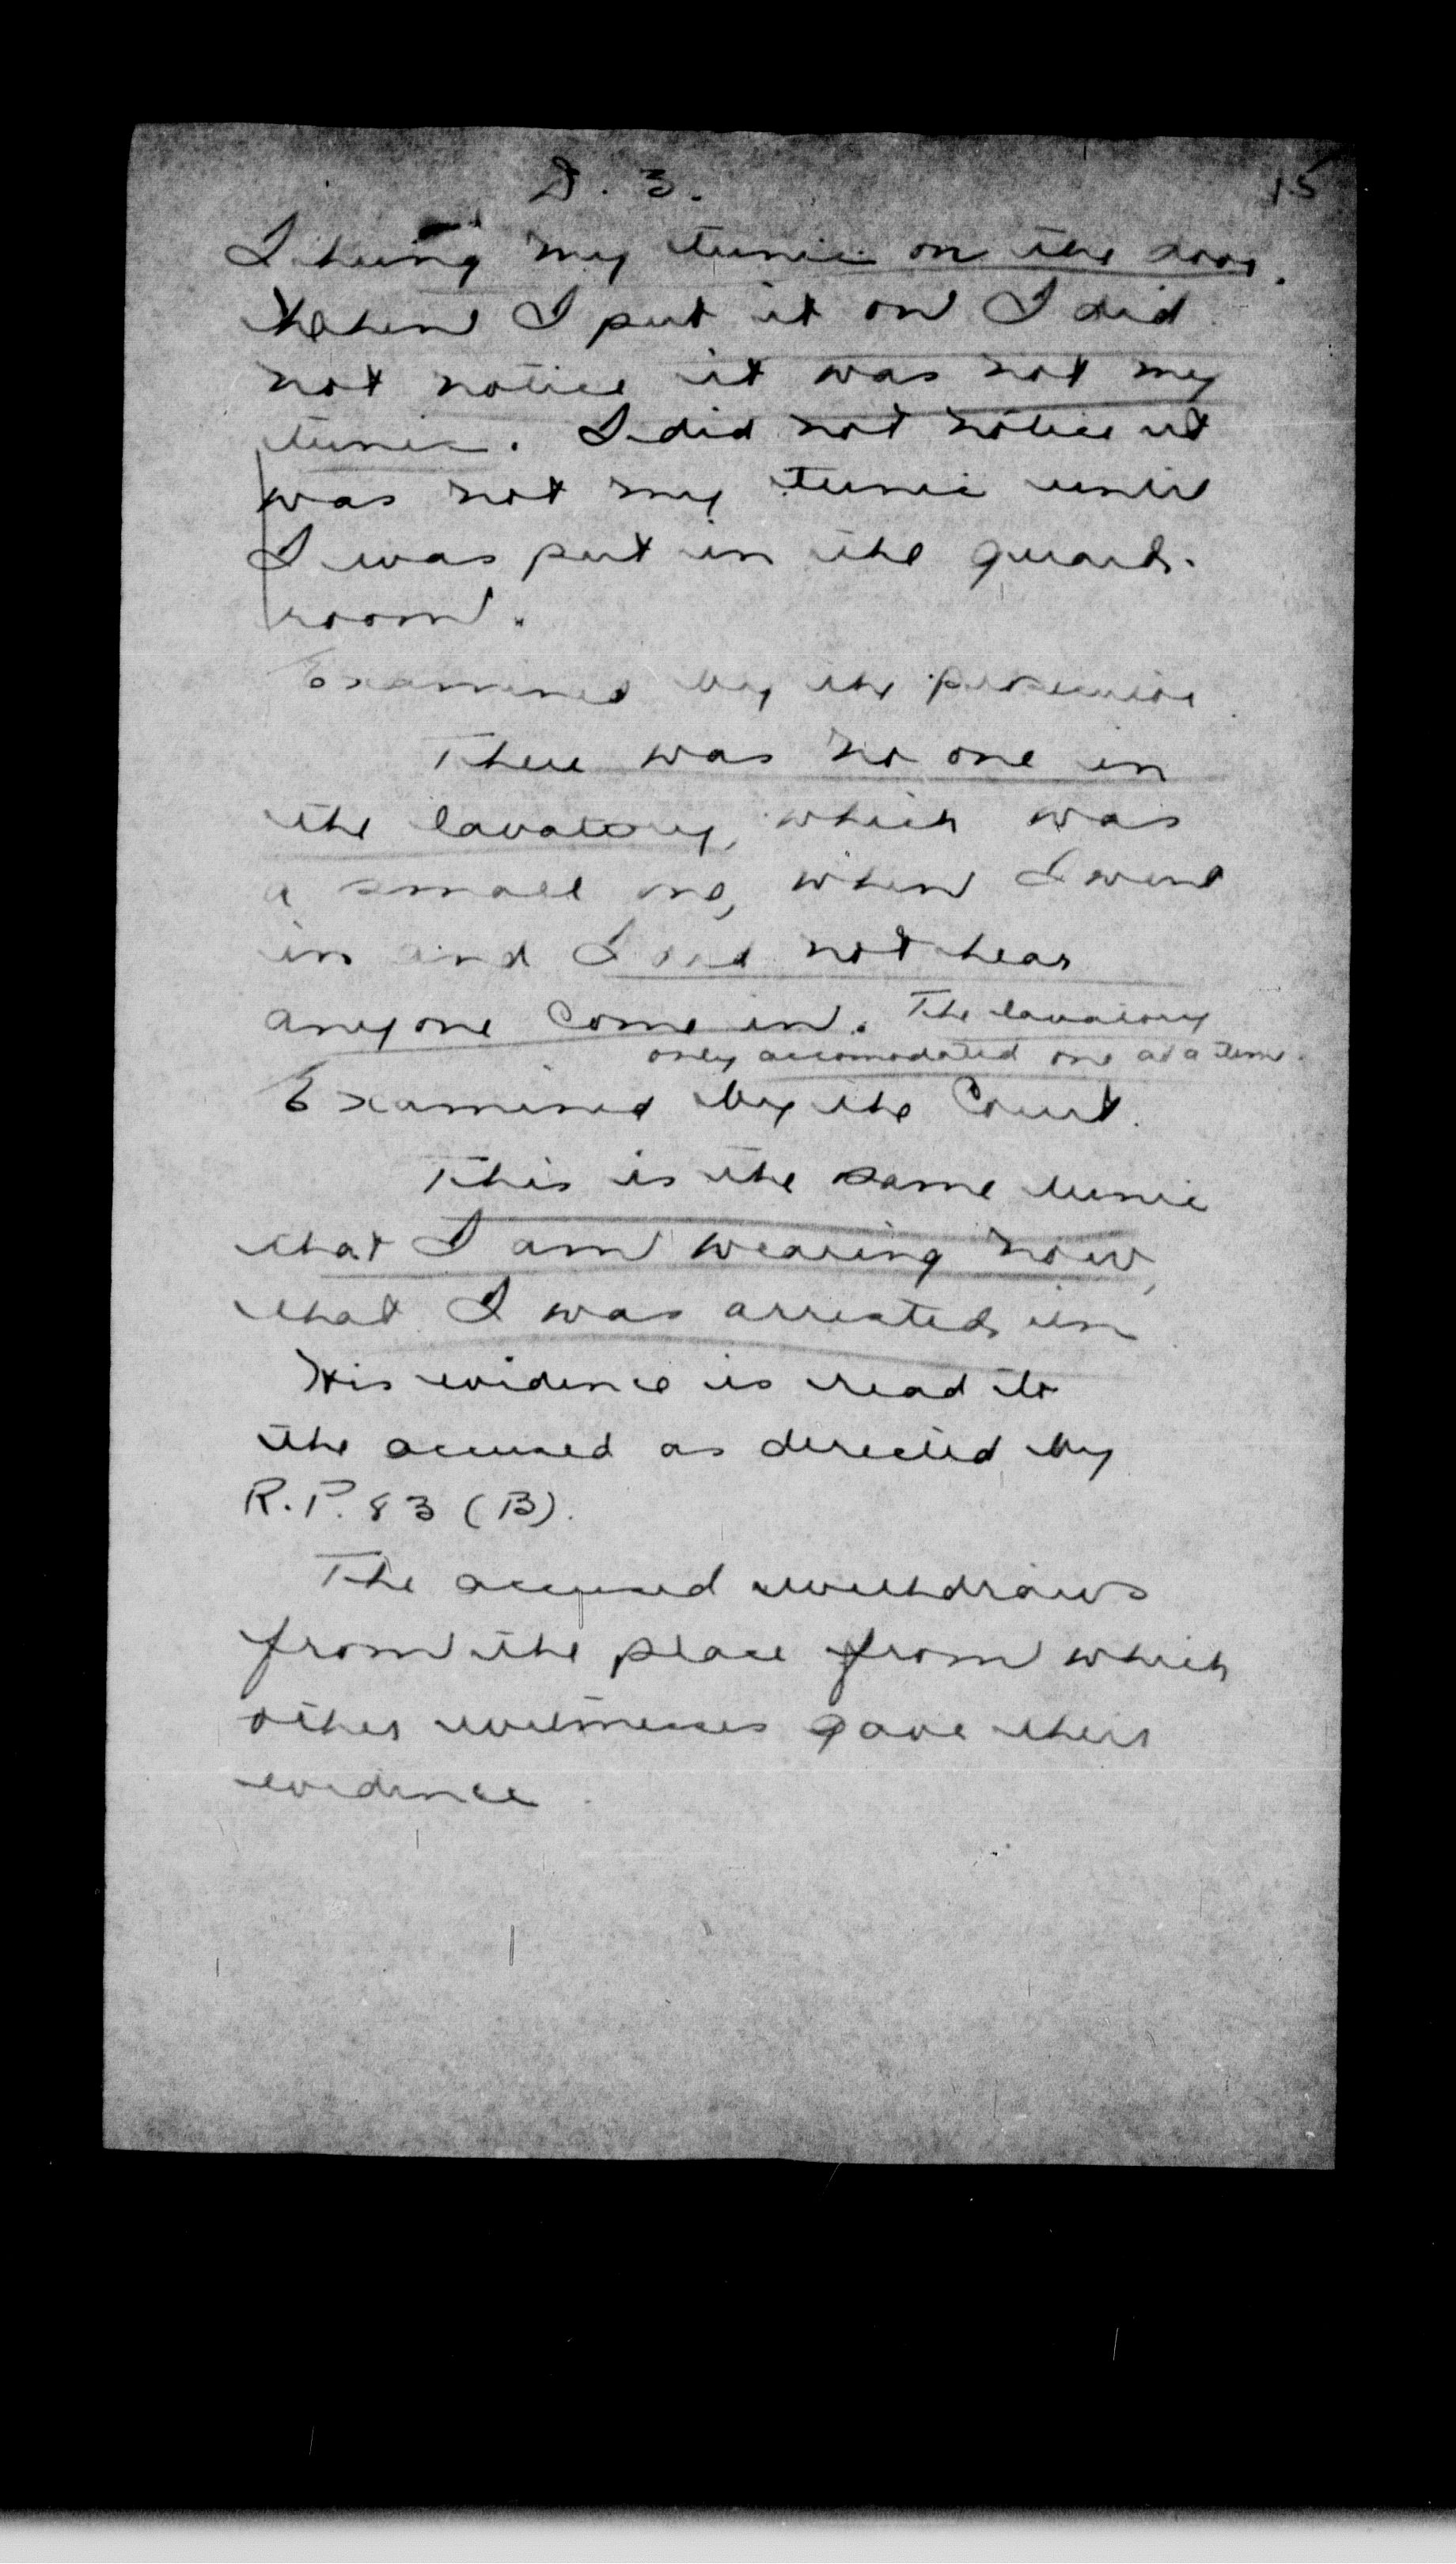 D. 3.
15
I hung my tunic on the door.
When I put it on I did
not notice it was not my
tunic. I did not notice it
was not my tunic until
I was put in the guard-
room.
Examined by the prosecutor.
There was no one in
the lavatory, which was
a small one, when I went
in and I did not hear
anyone come in. The lavatory
only accomodated one at a time.
Examined by the Court.
This is the same tunic
that I am wearing now,
that I was arrested in
His evidence is read to
the accused as directed by
R.P. 83 (B).
The accused withdraws
from the place from which
other witnesses gave their
evidence.